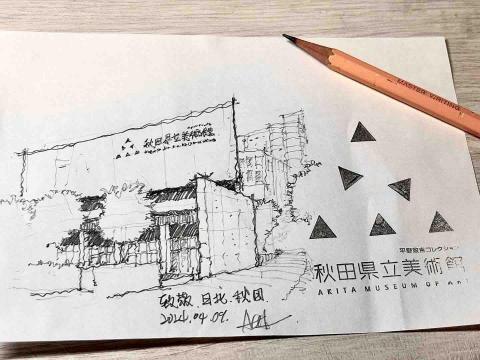 MASTER WRITING
秋田県立美術館
平野政吉コレクション
秋田県立美術館
AKITA MUSEUM OF Art
致敬.日北.秋田.
2024.04.09.